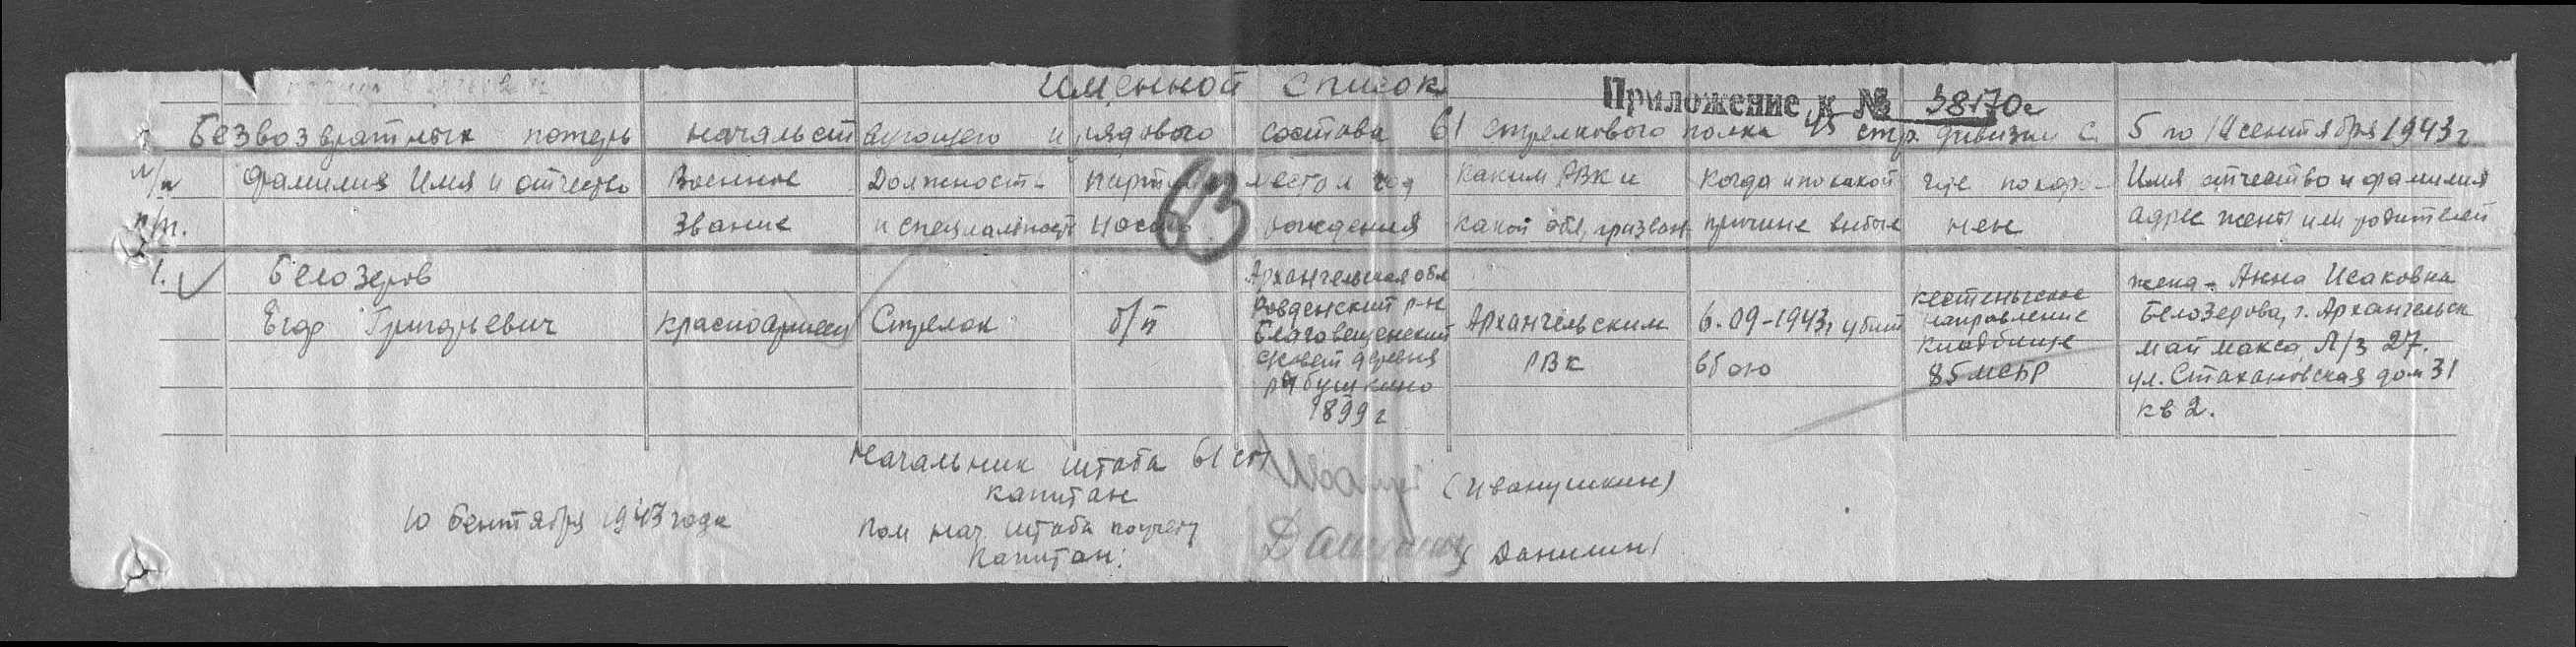 Именной список
Приложение к № 38170с
Безвозвратных потерь начальствующего и рядового состава 61 стрелкового полка 45 стр. дивизии с 5 по 10 сентября 1943 г
№/№ Фамилия Имя и отчество Военное Должность партий место и год Каким РВК и когда и по какой где похоро- Имя отчество и фамилия
п/п. звание и специальность ность рождения какой обл. призван причине выбыл нен адрес жены или родителей
63
1. Белозеров
Егор Григорьевич
Красноармеец
Стрелок
б/п
Архангельская обл
Ровденский р-н
Благовещенский
совет деревня
Рябушкино
1899 г
Архангельским
РВК
6.09-1943г убит
в бою
Кестеньгское
направление
кладбище
85 МСБР
жена - Анна Исаковна
Белозерова, г. Архангельск
Маймакса, Л/з 27.
ул. Стахановская дом 31
кв 2.
Начальник штаба 61 сп
капитан
(Иванушкин)
10 Сентября 1943 года
Пом нач. штаба по учету
Капитан:
(Данилин)